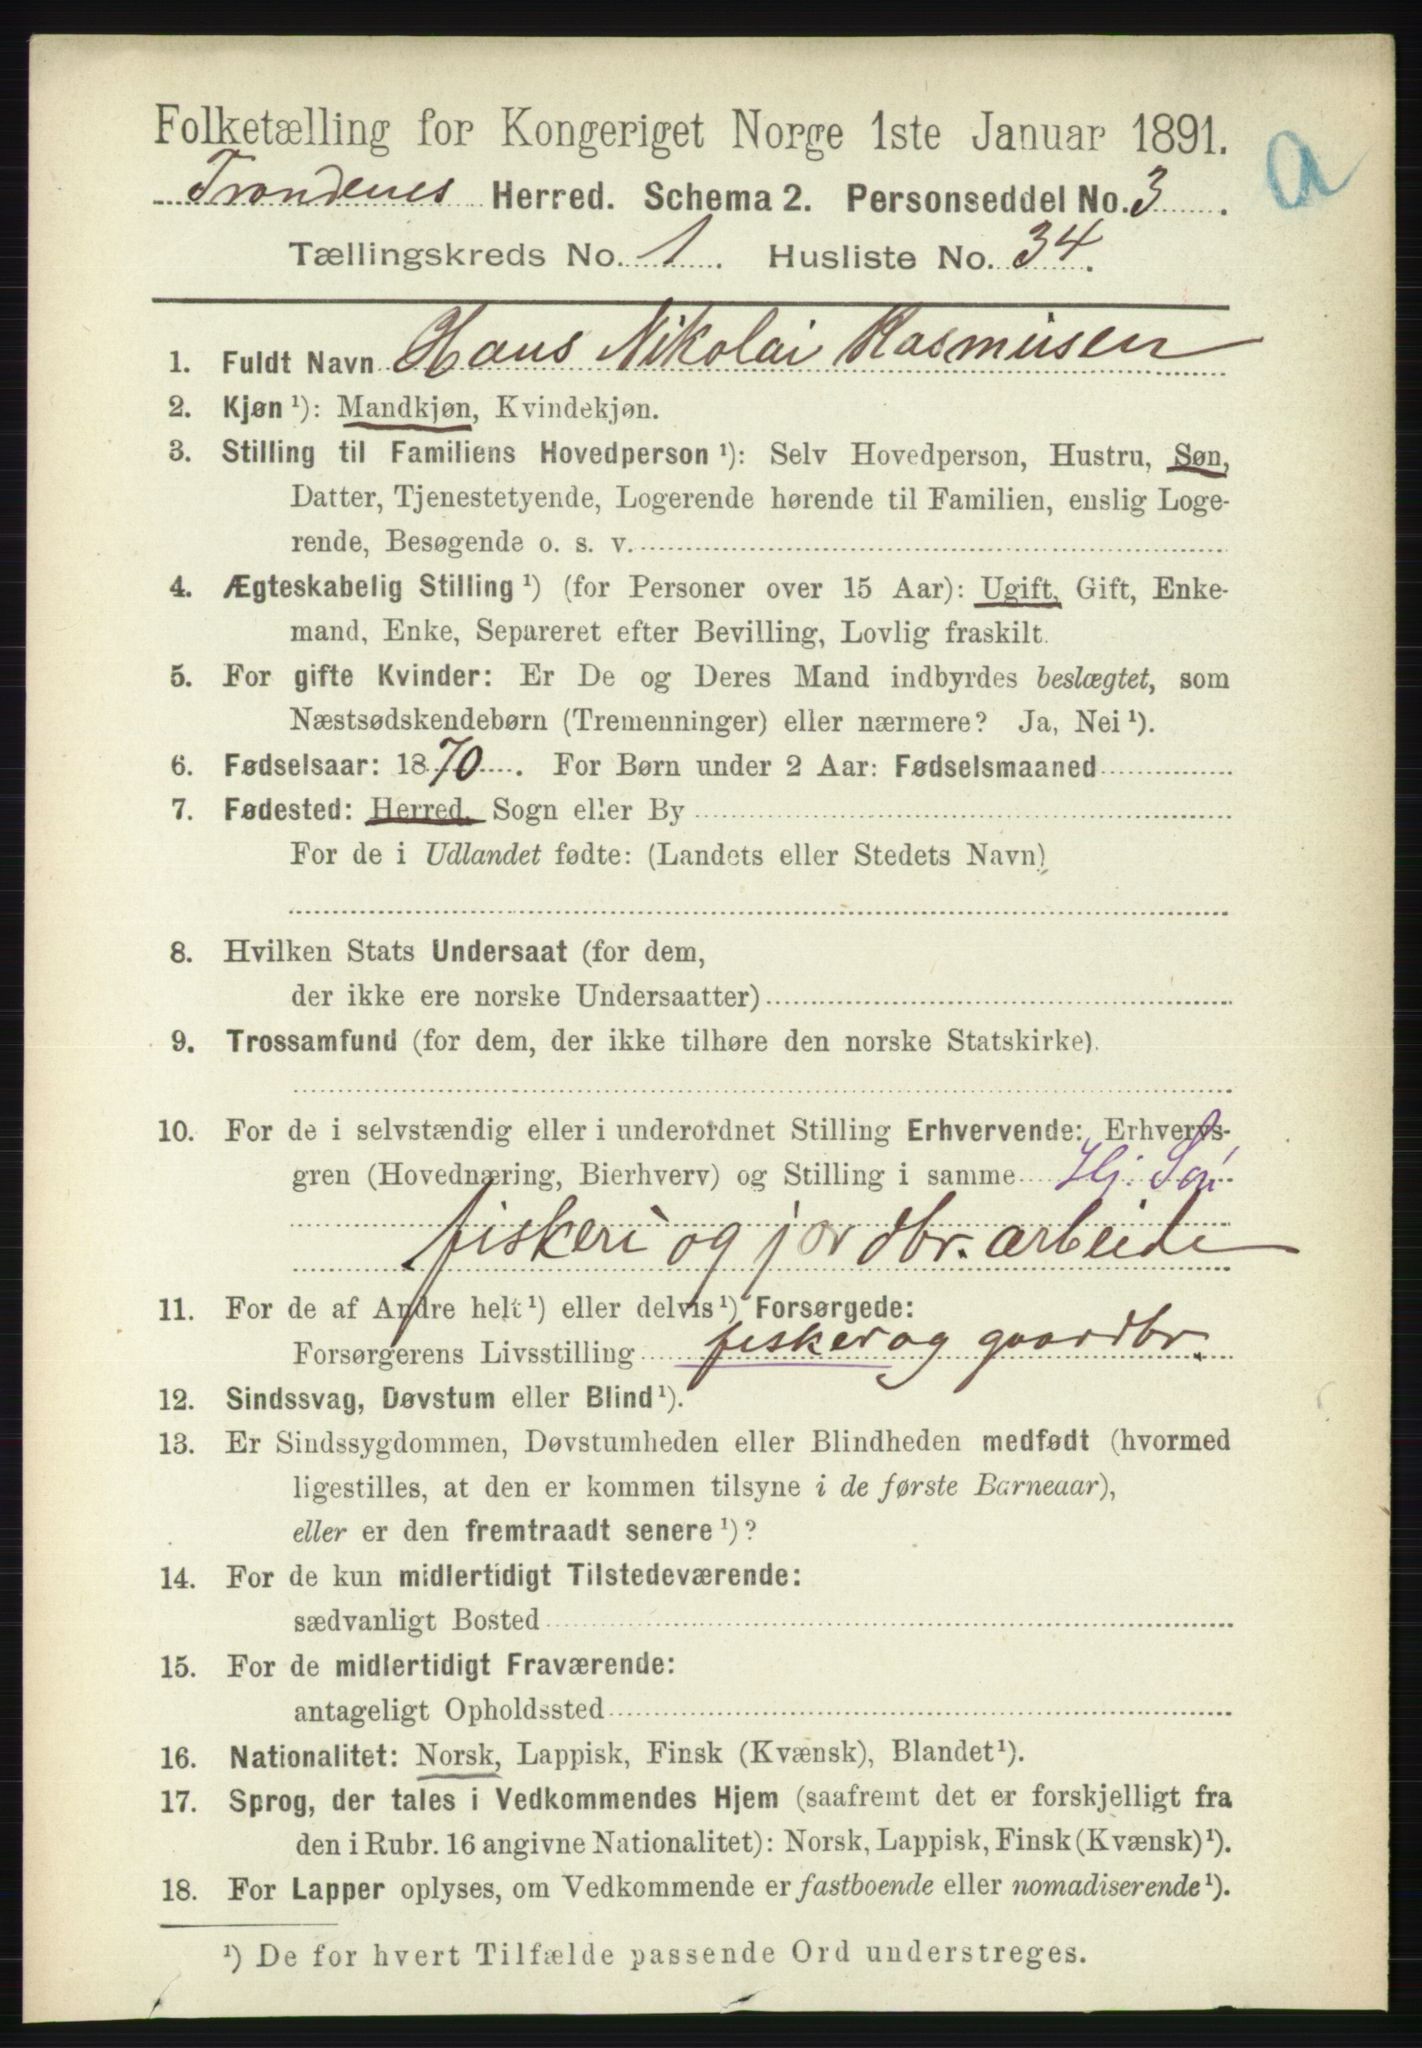 Folketælling for Kongeriget Norge 1ste Januar 1891.
a
Trondenes Herred. Schema 2. Personseddel No. 3
Tællingskreds No. 1. Husliste No. 34.
1. Fuldt Navn Hans Nikolai Rasmusen
2. Kjøn ¹): Mandkjøn, Kvindekjøn.
3. Stilling til Familiens Hovedperson ¹): Selv Hovedperson, Hustru, Søn,
Datter, Tjenestetyende, Logerende hørende til Familien, enslig Loge-
rende, Besøgende o. s. v.
4. Ægteskabelig Stilling ¹) (for Personer over 15 Aar): Ugift, Gift, Enke-
mand, Enke, Separeret efter Bevilling, Lovlig fraskilt.
5. For gifte Kvinder: Er De og Deres Mand indbyrdes beslægtet, som
Næstsødskendebørn (Tremenninger) eller nærmere? Ja, Nei ¹).
6. Fødselsaar: 1870. For Børn under 2 Aar: Fødselsmaaned
7. Fødested: Herred, Sogn eller By
For de i Udlandet fødte: (Landets eller Stedets Navn)
8. Hvilken Stats Undersaat (for dem,
der ikke ere norske Undersaatter)
9. Trossamfund (for dem, der ikke tilhøre den norske Statskirke).
10. For de i selvstændig eller i underordnet Stilling Erhvervende: Erhvervs-
gren (Hovednæring, Bierhverv) og Stilling i samme Hj. Søn
fiskeri og jordbr. arbeide
11. For de af Andre helt ¹) eller delvis ¹) Forsørgede:
Forsørgerens Livsstilling fisker og gaardbr.
12. Sindssvag, Døvstum eller Blind ¹).
13. Er Sindssygdommen, Døvstumheden eller Blindheden medfødt (hvormed
ligestilles, at den er kommen tilsyne i de første Barneaar),
eller er den fremtraadt senere ¹)?
14. For de kun midlertidigt Tilstedeværende:
sædvanligt Bosted
15. For de midlertidigt Fraværende:
antageligt Opholdssted
16. Nationalitet: Norsk, Lappisk, Finsk (Kvænsk), Blandet ¹).
17. Sprog, der tales i Vedkommendes Hjem (saafremt det er forskjelligt fra
den i Rubr. 16 angivne Nationalitet): Norsk, Lappisk, Finsk (Kvænsk) ¹).
18. For Lapper oplyses, om Vedkommende er fastboende eller nomadiserende ¹).
¹) De for hvert Tilfælde passende Ord understreges.